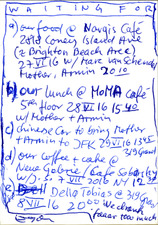 WAITING FOR
a) our food @ Nargis Café
2818 Coney Island Ave
(@ Brighton Beach Ave)
27 VI 16 w/ Marc van Schendel
Mother, Armin 2010
b) our lunch @ MoMA café
5th floor 28 VI 16 15:40
w/ Mother + Armin
c) chinese car to bring Mother
+ Armin to JFK 29 VI 16 13:45
d) our coffee + cake @
Neue Galerie/Café Sabarsky
w/ J. 7 VII 2016 NY
e) Della Tobias @ 319 Grand
8 VII 16 2000 We drank
far too much